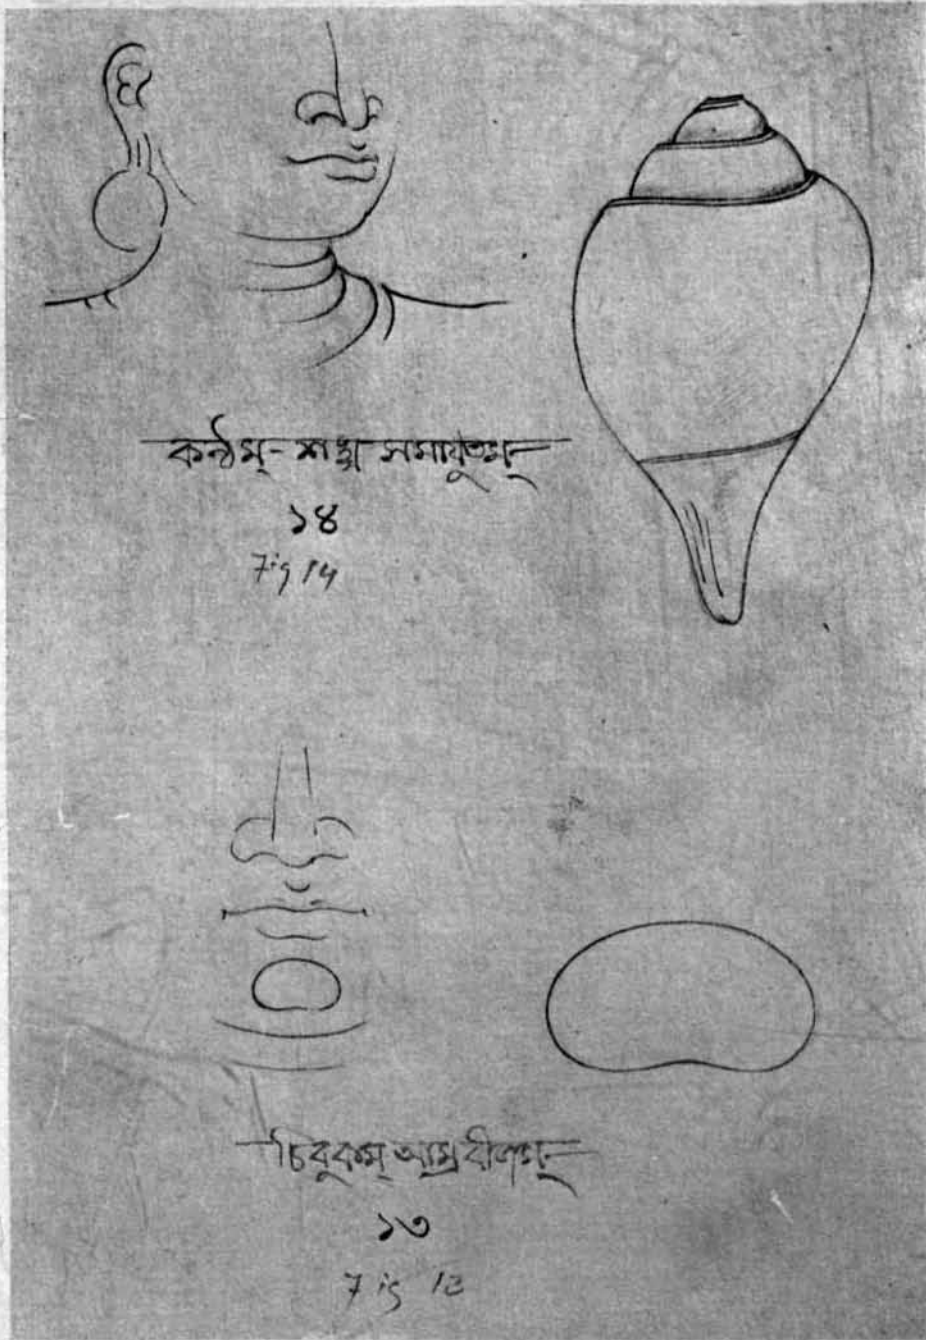 কন্ঠম্-শঙ্খ সমাযুতম্
১৪
Fig 14
চিবুকম্ আম্রবীজম্
১৩
Fig 13